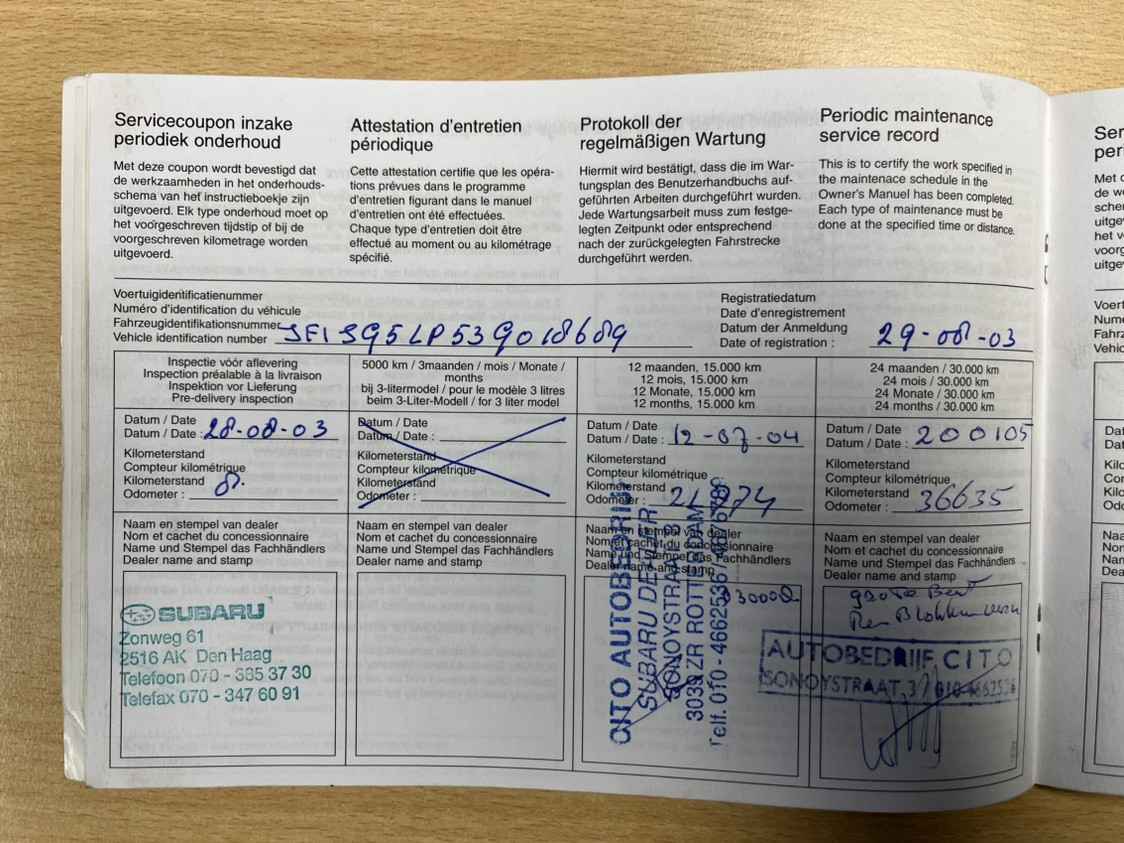 Servicecoupon inzake
periodiek onderhoud
Met deze coupon wordt bevestigd dat
de werkzaamheden in het onderhouds-
schema van het instructieboekje zijn
uitgevoerd. Elk type onderhoud moet op
het voorgeschreven tijdstip of bij de
voorgeschreven kilometrage worden
uitgevoerd.
Attestation d'entretien
périodique
Cette attestation certifie que les opéra-
tions prévues dans le programme
d'entretien figurant dans le manuel
d'entretien ont été effectuées.
Chaque type d'entretien doit être
effectué au moment ou au kilométrage
spécifié.
Protokoll der
regelmäßigen Wartung
Hiermit wird bestätigt, dass die im War-
tungsplan des Benutzerhandbuchs auf-
geführten Arbeiten durchgeführt wurden.
Jede Wartungsarbeit muss zum festge-
legten Zeitpunkt oder entsprechend
nach der zurückgelegten Fahrstrecke
durchgeführt werden.
Periodic maintenance
service record
This is to certify the work specified in
the maintenace schedule in the
Owner's Manual has been completed.
Each type of maintenance must be
done at the specified time or distance.
Voertuigidentificatienummer
Numéro d'identification du véhicule
Fahrzeugidentifikationsnummer
Vehicle identification number JF1SG5LP53G018689
Registratiedatum
Date d'enregistrement
Datum der Anmeldung
Date of registration : 29-08-03
Inspectie vóór aflevering
Inspection préalable à la livraison
Inspektion vor Lieferung
Pre-delivery inspection
Datum / Date
Datum / Date : 28-08-03
Kilometerstand
Compteur kilométrique
Kilometerstand
Odometer : 8.
Naam en stempel van dealer
Nom et cachet du concessionnaire
Name und Stempel des Fachhändlers
Dealer name and stamp
SUBARU
Zonweg 61
2516 AK Den Haag
Telefoon 070 - 385 37 30
Telefax 070 - 347 60 91
5000 km / 3maanden / mois / Monate /
months
bij 3-litermodel / pour le modèle 3 litres
beim 3-Liter-Modell / for 3 liter model
Datum / Date
Datum / Date :
Kilometerstand
Compteur kilométrique
Kilometerstand
Odometer :
Naam en stempel van dealer
Nom et cachet du concessionnaire
Name und Stempel des Fachhändlers
Dealer name and stamp
12 maanden, 15.000 km
12 mois, 15.000 km
12 Monate, 15.000 km
12 months, 15.000 km
Datum / Date
Datum / Date : 12-07-04
Kilometerstand
Compteur kilométrique
Kilometerstand
Odometer :
Naam en stempel van dealer
Nom et cachet du concessionnaire
Name und Stempel des Fachhändlers
Dealer name and stamp
CITO AUTOBEDRIJF
SUBARU DEALER
SONOYSTRAAT
3039 ZR ROTTERDAM
Telf. 010 - 4662536 /
24 maanden / 30.000 km
24 mois / 30.000 km
24 Monate / 30.000 km
24 months / 30.000 km
Datum / Date
Datum / Date : 200105
Kilometerstand
Compteur kilométrique
Kilometerstand
Odometer : 36635
Naam en stempel van dealer
Nom et cachet du concessionnaire
Name und Stempel des Fachhändlers
Dealer name and stamp
grote Beurt
AUTOBEDRIJF CITO
SONOYSTRAAT 37 010-4662536